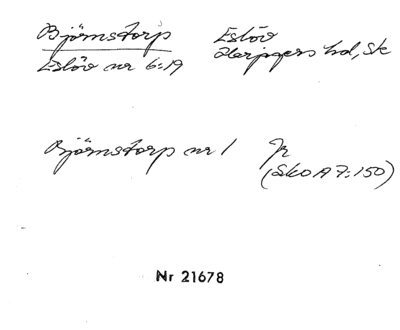 Björnstorp Eslöv
Eslöv nr 6:19 Harjagers hd, Sk
Björnstorp nr 1 Jr
(Sko A 7:150)
Nr 21678